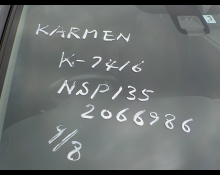 KARMEN
K-7416
NSP135
2066986
4/8